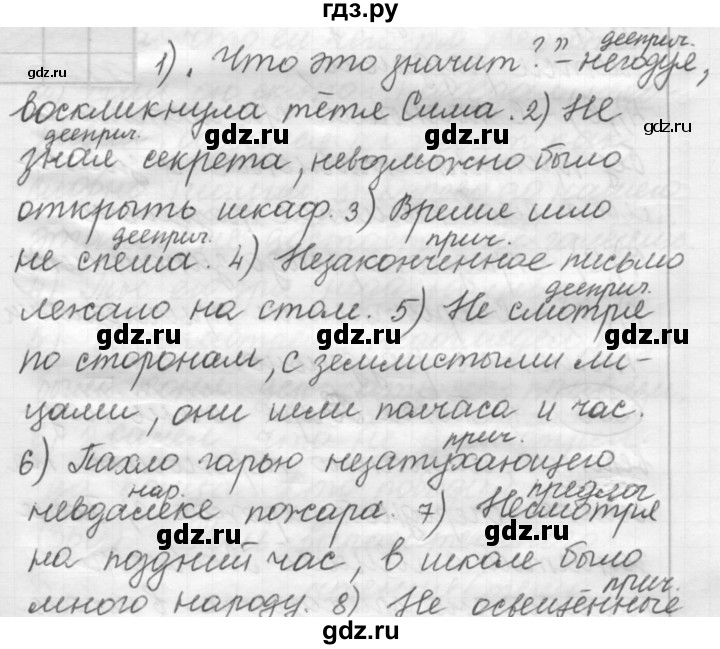 гдз.ру
дееприч.
1). Что это значит?" - негодуя,
воскликнула тётя Сима. 2) Не
дееприч.
зная секрета, невозможно было
открыть шкаф. 3) Время шло
дееприч. прич.
не спеша. 4) Незаконченное письмо
дееприч.
лежало на столе. 5) Не смотря
по сторонам, с землистыми ли-
цами, они шли полчаса и час.
прич.
6) Пахло гарью незатухающего
нар. предлог
невдалеке пожара. 7) Несмотря
на поздний час, в школе было
прич.
много народу. 8) Не освещённые
gdz.ru
gdz.ru
gdz.ru
gdz.ru
gdz.ru
gdz.ru
gdz.ru
gdz.ru
gdz.ru
gdz.ru
gdz.ru